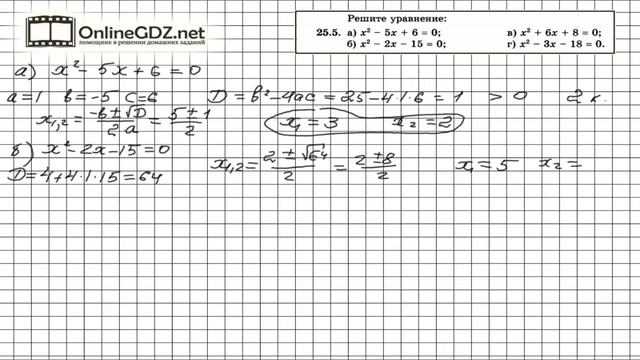 OnlineGDZ.net
помощник в решении домашних заданий
Решите уравнение:
25.5. а) x² − 5x + 6 = 0; в) x² + 6x + 8 = 0;
б) x² − 2x − 15 = 0; г) x² − 3x − 18 = 0.
а) x² − 5x + 6 = 0
a=1 b=-5 c=6 D = b² − 4ac = 25 − 4·1·6 = 1 > 0 2 к.
x₁,₂ = (−b ± √D)/2a = (5 ± 1)/2 x₁ = 3 x₂ = 2
б) x² − 2x − 15 = 0
D = 4 + 4·1·15 = 64 x₁,₂ = (2 ± √64)/2 = (2 ± 8)/2 x₁ = 5 x₂ =